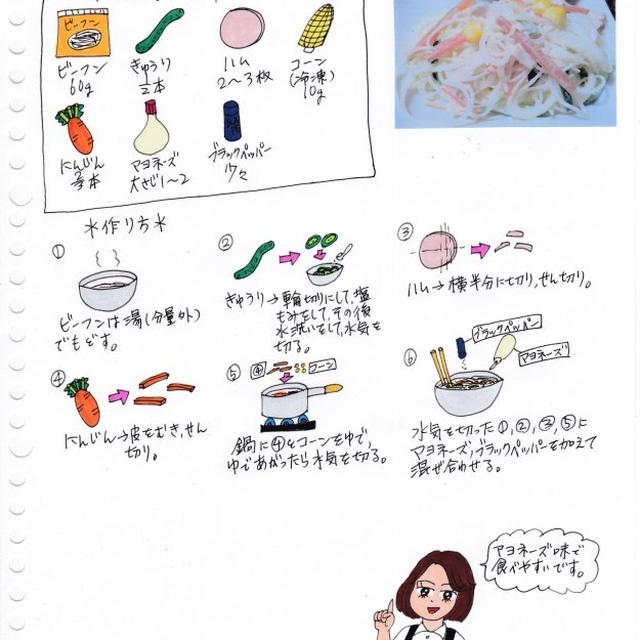 ビーフン
ビーフン
60g
きゅうり
1/2本
ハム
2〜3枚
コーン
(冷凍)
10g
にんじん
マヨネーズ
大さじ1〜2
ブラックペッパー
少々
*作り方*
①
ビーフンは湯(分量外)
でもどす。
②
きゅうり→輪切りにして,塩
もみをして,その後
水洗いをして,水気を
切る。
③
ハム→横半分に切り,せん切り。
④
にんじん→皮をむき,せん
切り。
⑤
④ コーン
鍋に④とコーンをゆで,
ゆであがったら水気を切る。
⑥
ブラックペッパー
マヨネーズ
水気を切った①,②,③,⑤に
マヨネーズ,ブラックペッパーを加えて
混ぜ合わせる。
マヨネーズ味で
食べやすいです。